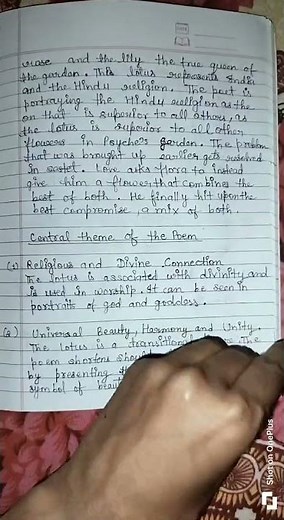 rose and the lily the true queen of
the garden. This lotus represents India
and the Hindu religion. The poet is
portraying the Hindu religion as the
on that is superior to all others, as
the lotus is superior to all other
flowers in Psyche's garden. The problem
that was brought up earlier gets resolved
in sestet. Love asks Flora to instead
give him a flower that combines the
best of both. He finally hit upon the
best compromise, a mix of both.
Central theme of the Poem
(1) Religious and Divine Connection
The lotus is associated with divinity and
is used in worship. It can be seen in
portraits of god and goddess.
(2) Universal Beauty, Harmony and Unity.
The lotus is a The
poem
by presenting
symbol of
Shot on OnePlus